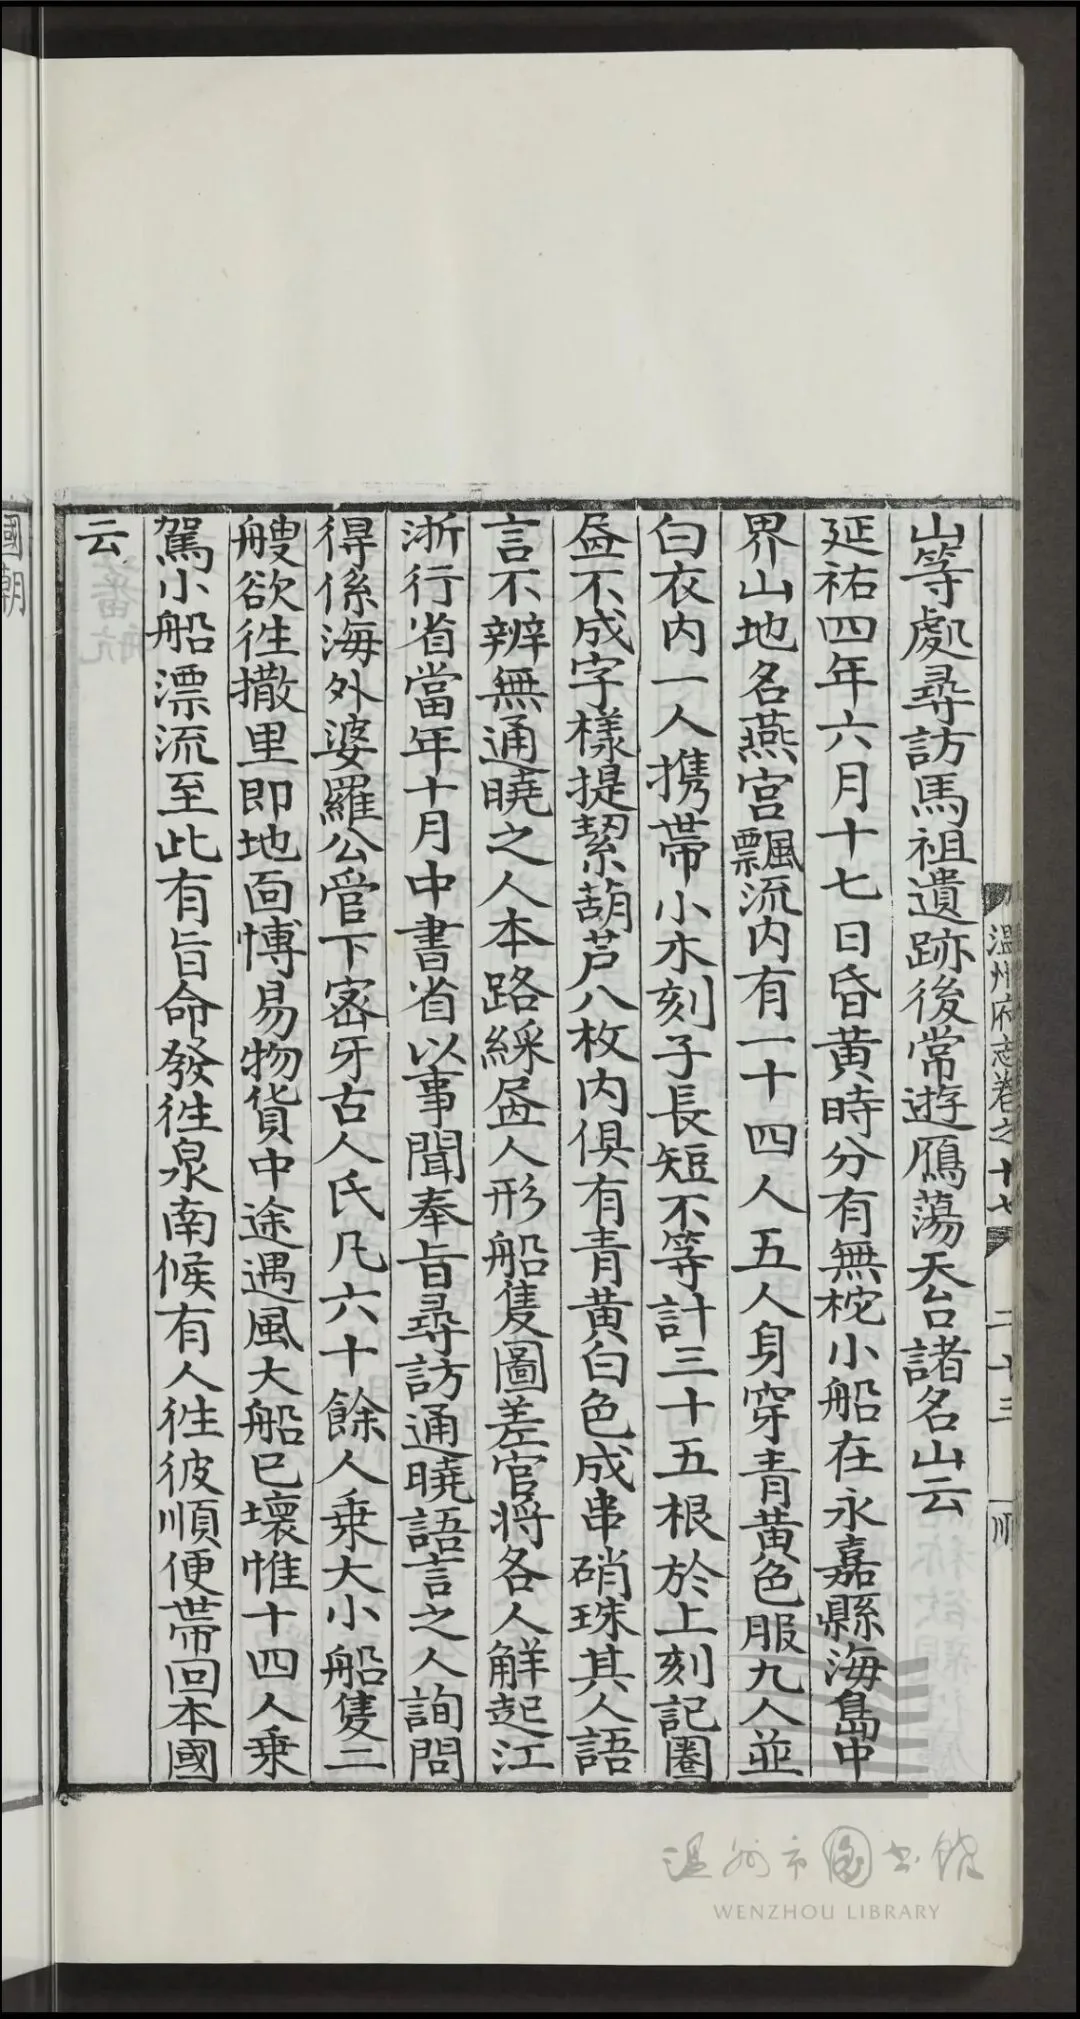 山等處尋訪馬祖遺跡後常遊鴈蕩天台諸名山云
延祐四年六月十七日昏黃時分有無柁小船在永嘉縣海島中
界山地名燕宮飄流内有一十四人五人身穿青黃色服九人並
白衣内一人携帶小木刻子長短不等計三十五根於上刻記圈
畫不成字樣提挈葫芦八枚内俱有青黃白色成串硝珠其人語
言不辨無通曉之人本路綵畫人形船隻圖差官将各人解起江
浙行省當年十月中書省以事聞奉旨尋訪通曉語言之人詢問
得係海外婆羅公管下密牙古人氏凡六十餘人乗大小船隻二
艘欲徃撒里即地面愽易物貨中途遇風大船已壞惟十四人乗
駕小船漂流至此有旨命發徃泉南候有人徃彼順便帶回本國
云
溫州府志卷之十七 二十三 順
國朝
温州市图书馆
WENZHOU LIBRARY